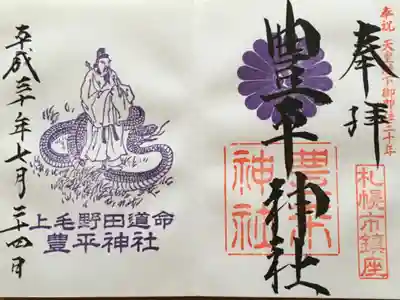 奉祝 天皇陛下御即位三十年
奉拝
札幌市鎮座
豐平神社
豊平神社
上毛野田道命
豊平神社
平成三十年七月二十四日